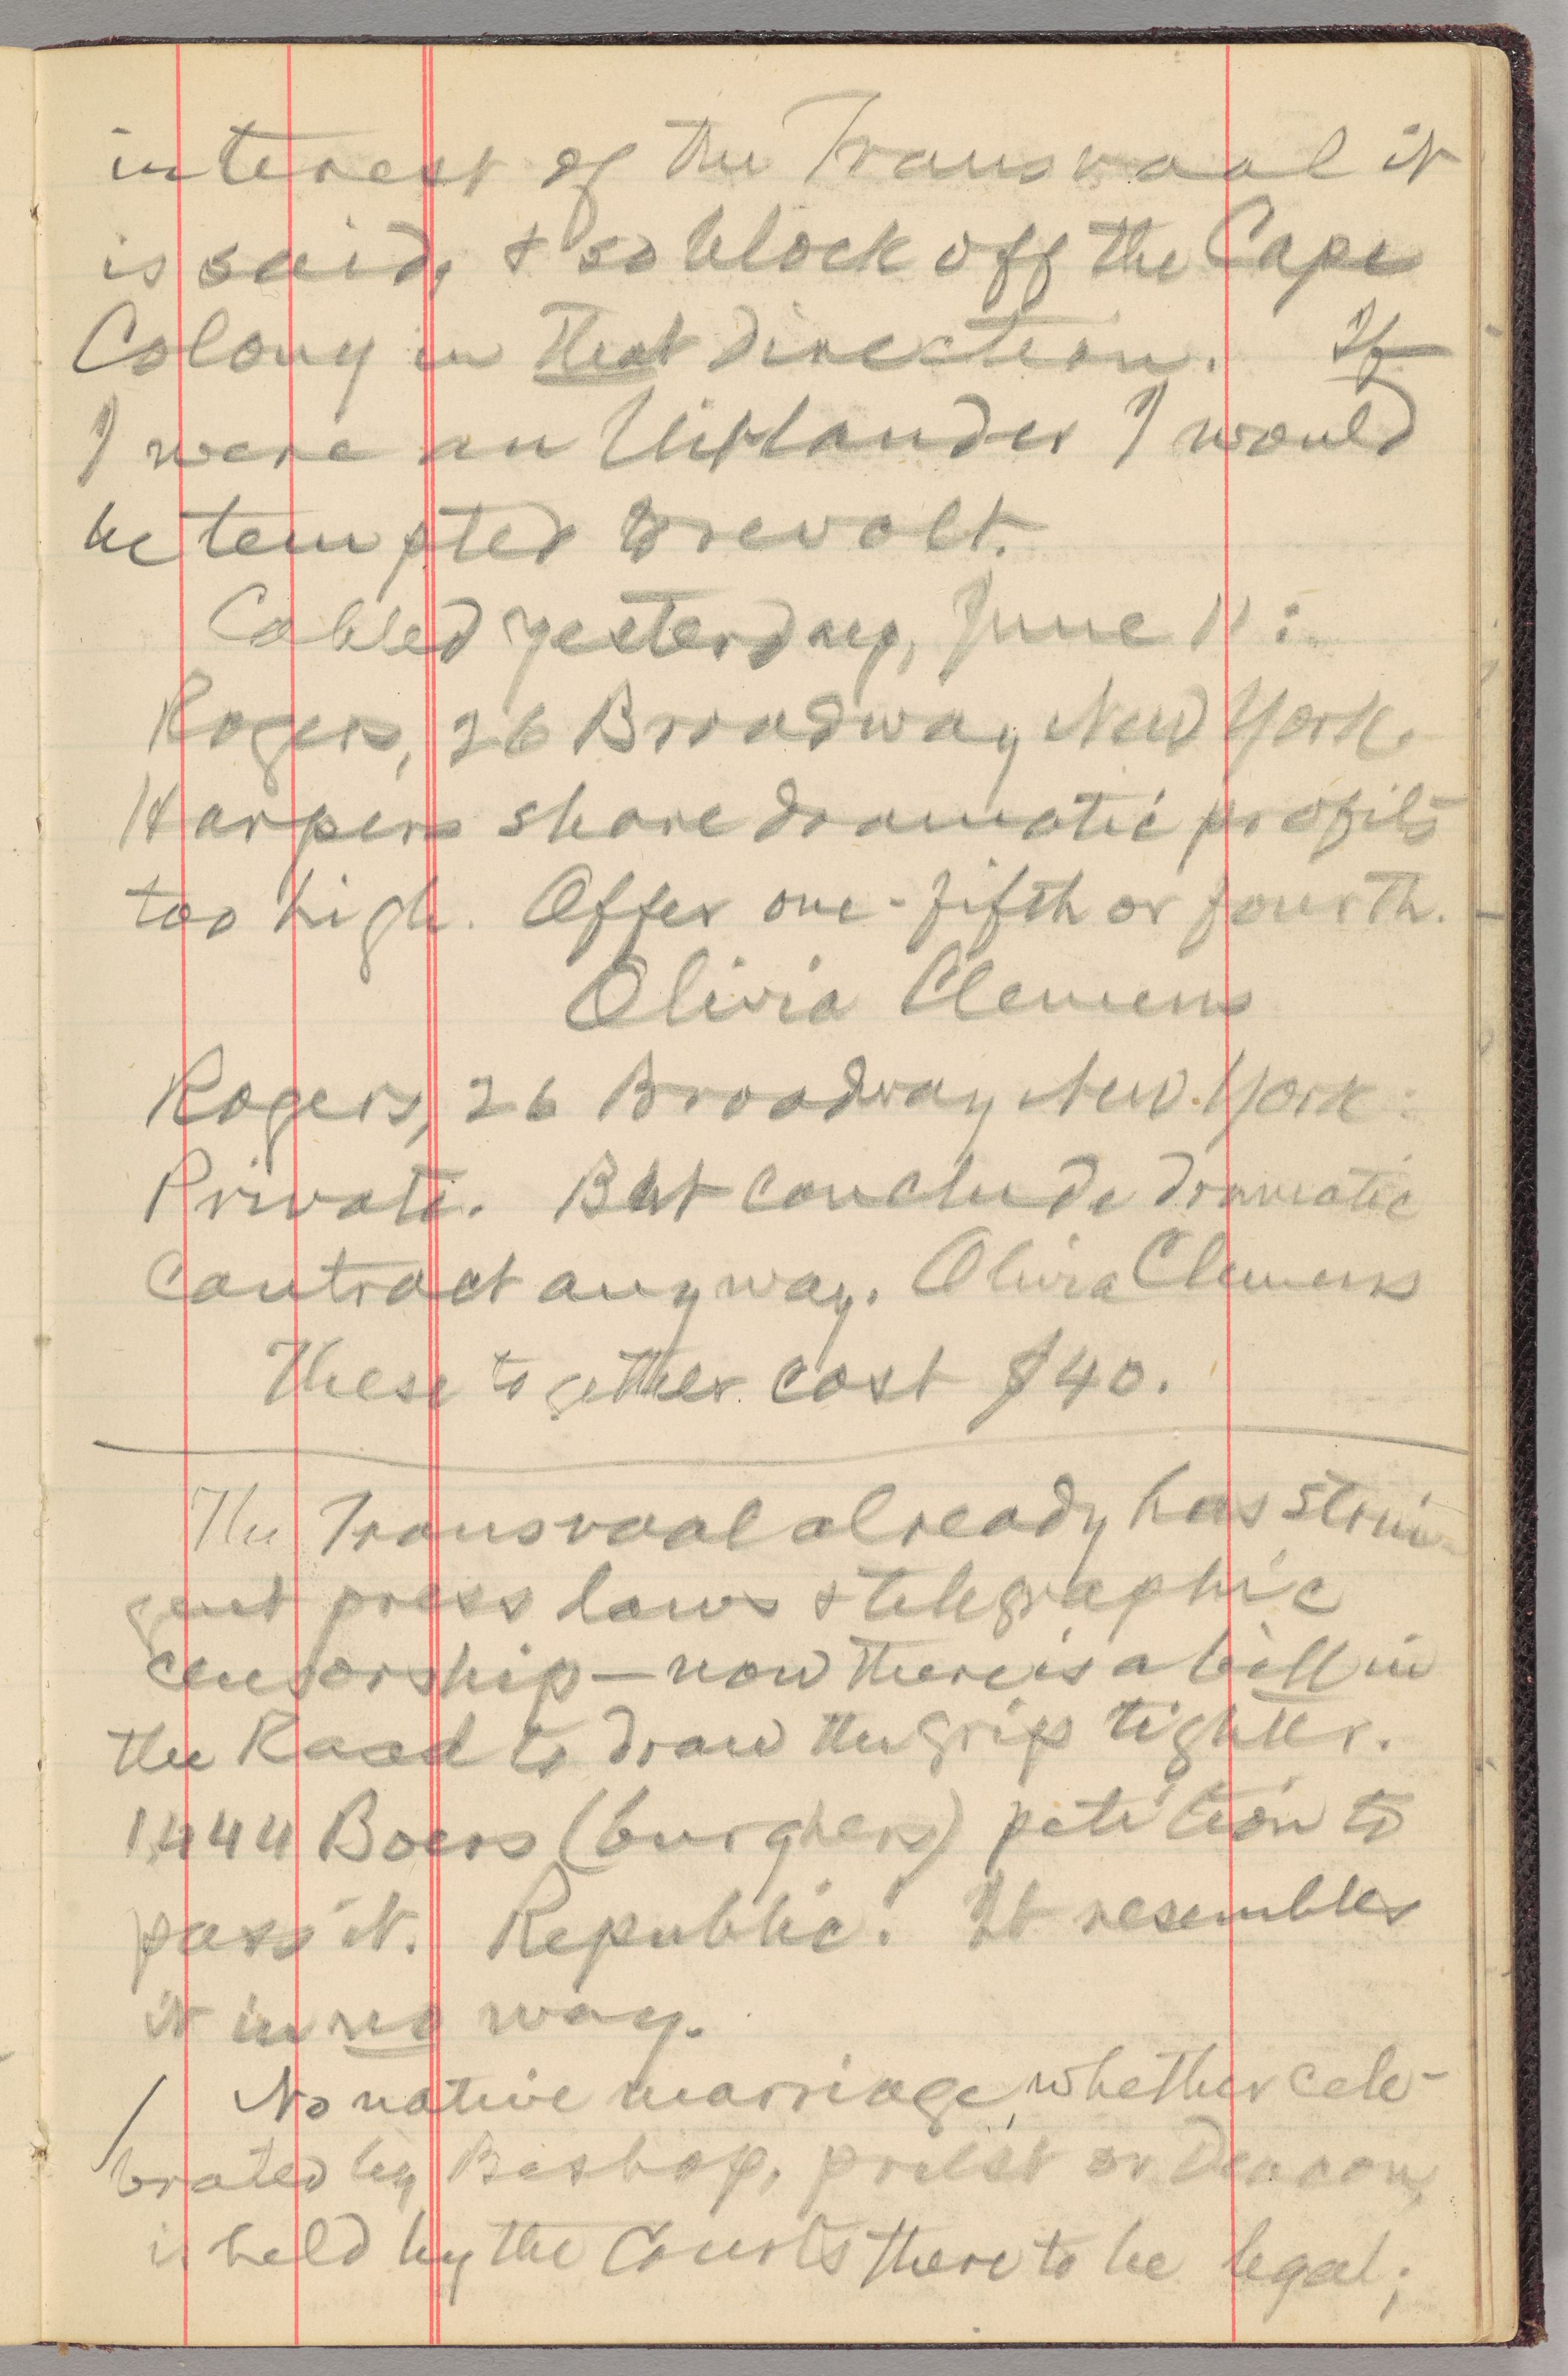 interest of the Transvaal it
is said, & so block off the Cape
Colony in that direction. If
I were an Uitlander I would
be tempted to revolt.
Cabled yesterday, June 11:
Rogers, 26 Broadway New York.
Harpers share dramatic profits
too high. Offer one-fifth or fourth.
Olivia Clemens
Rogers, 26 Broadway New York:
Private. But conclude dramatic
contract anyway. Olivia Clemens
These together cost $40.
The Transvaal already has strin-
gent press laws & telegraphic
censorship—now there is a bill in
the Raad to draw the grip tighter.
1,444 Boers (burghers) petition to
pass it. Republic! It resembles
it in no way.
No native marriage, whether cele-
brated by Bishop, priest or Deacon,
is held by the Courts there to be legal;